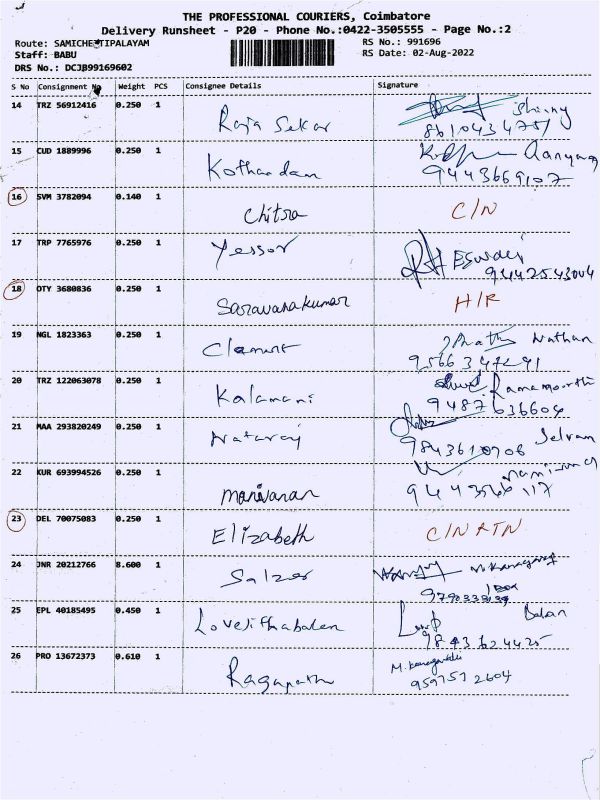 THE PROFESSIONAL COURIERS, Coimbatore
Delivery Runsheet - P20 - Phone No.:0422-3505555 - Page No.:2
Route: SAMICHETTIPALAYAM RS No.: 991696
Staff: BABU RS Date: 02-Aug-2022
DRS No.: DCJB99169602
S No Consignment No Weight PCS Consignee Details Signature
14 TRZ 56912416 0.250 1 Raja Sekar
15 CUD 1889996 0.250 1 Kothandam
9443669107
16 SVM 3782094 0.140 1 Chitra C/N
17 TRP 7765976 0.250 1 Yessor Eswari
9442543004
18 OTY 3680836 0.250 1 Saravanakumar H/R
19 NGL 1823363 0.250 1 Clement Nathan
20 TRZ 122063078 0.250 1 Kalamani Ramamoorthi
9487636604
21 MAA 293820249 0.250 1 Nataraj Selvam
22 KUR 693994526 0.250 1 manivanan
23 DEL 70075083 0.250 1 Elizabeth C/N RTN
24 JNR 20212766 8.600 1 Salzer
1 Box
25 EPL 40185495 0.450 1 Lovelithabalan Balan
9843624425
26 PRO 13672373 0.610 1 Ragapathi
9597572604